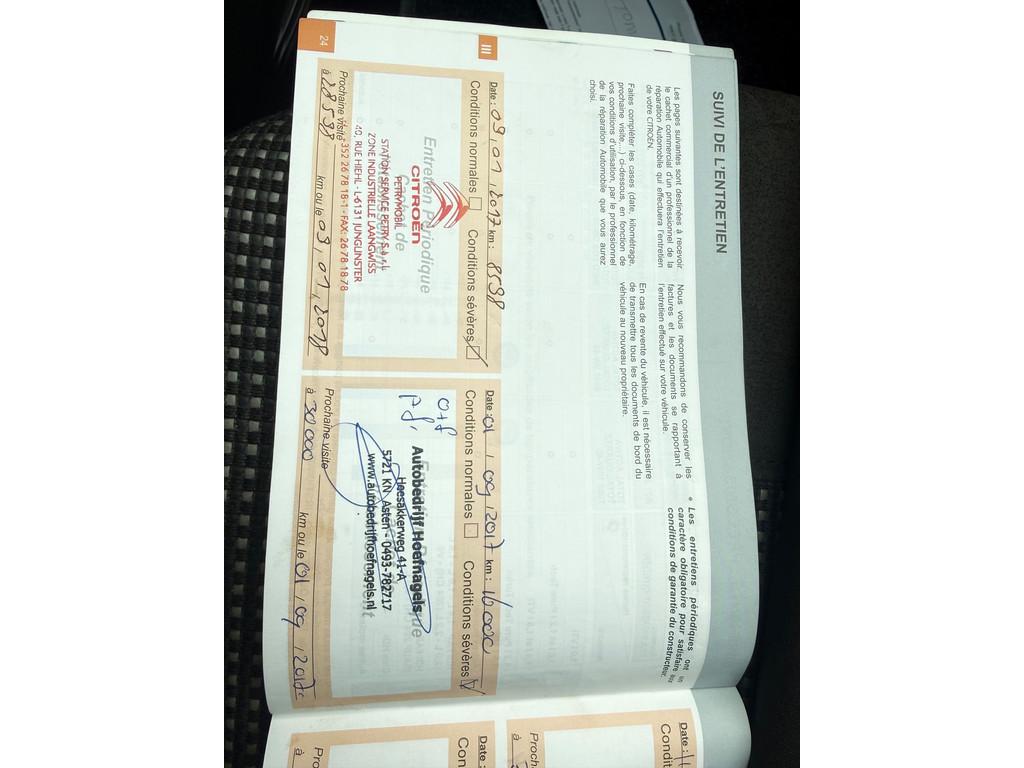 SUIVI DE L'ENTRETIEN
Les pages suivantes sont destinées à recevoir
le cachet commercial d'un professionnel de la
réparation Automobile qui effectuera l'entretien
de votre CITROËN.
Faites compléter les cases (date, kilométrage,
prochaine visite,...) ci-dessous, en fonction de
vos conditions d'utilisation, par le professionnel
de la réparation Automobile que vous aurez
choisi.
Nous vous recommandons de conserver les
factures et les documents se rapportant à
l'entretien effectué sur votre véhicule.
En cas de revente du véhicule, il est nécessaire
de transmettre tous les documents de bord du
véhicule au nouveau propriétaire.
• Les entretiens périodiques ont un
caractère obligatoire pour satisfaire aux
conditions de garantie du constructeur.
III
Date : 09, 01, 2017 km : 8598
Conditions normales Conditions sévères
Entretien Périodique
CITROËN
PETRYMOBIL
STATION SERVICE PETRY S.à r.l.
ZONE INDUSTRIELLE LAANGWISS
40, RUE HIEHL - L-6131 JUNGLINSTER
352 26 78 18-1 - FAX: 26 78 18 78
Prochaine visite
à 28598 km ou le 09, 01, 2018
Date : 01 / 09, 2017 km : 16000
Conditions normales Conditions sévères
Autobedrijf Hoefnagels
Heesakkerweg 41-A
5721 KN Asten - 0493-782717
www.autobedrijfhoefnagels.nl
Prochaine visite
à 30000 km ou le 01, 09, 201
24
Date :
Condit
Proch
à
Date :
Con
Pro
à